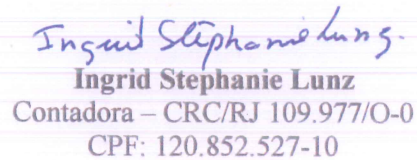 Ingrid Stephanie Lunz.
Ingrid Stephanie Lunz
Contadora – CRC/RJ 109.977/O-0
CPF: 120.852.527-10